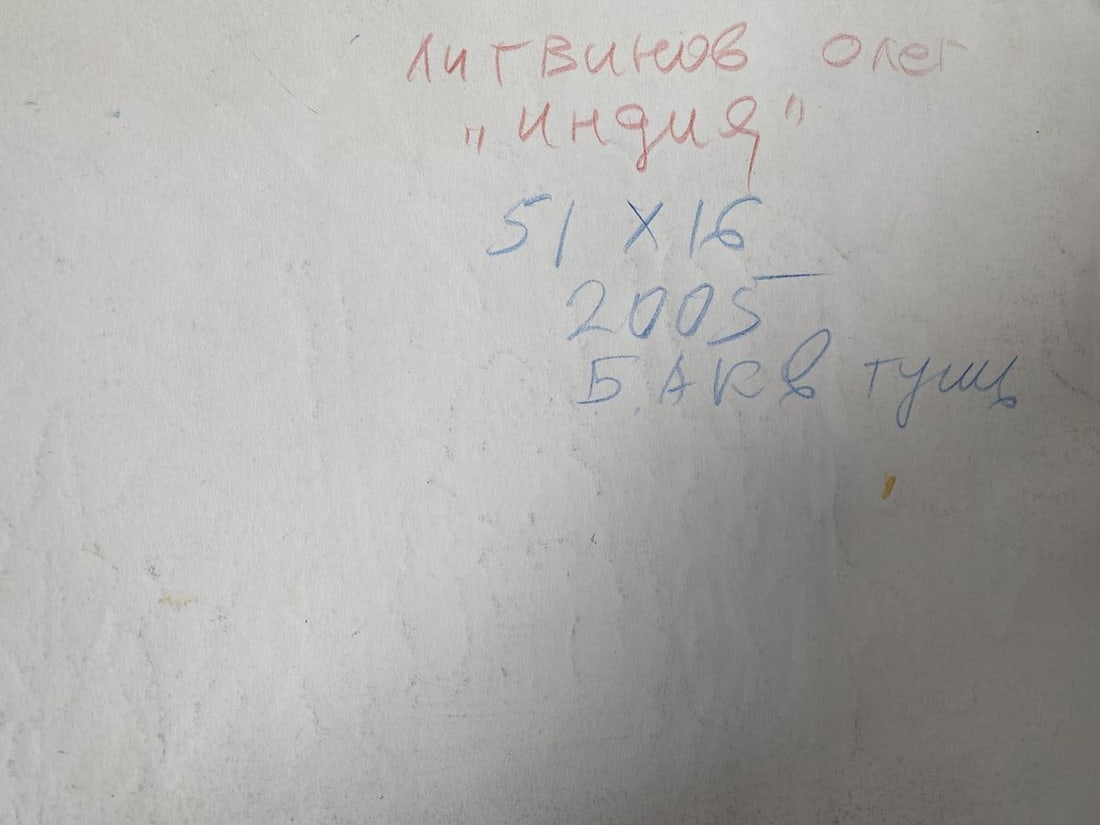 Литвинов Олег
„Индия"
51 х 16
2005
Б. АКВ тушь